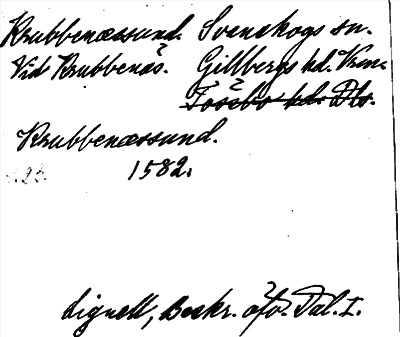 Krubbenæssund. Svenskogs sn.
Vid Krubbenäs. Gillbergs hd. Vrm.
Tössbo hd. Dls.
Krubbenæssund.
1582.
Lignell, Beskr. öfv. Dal. I.